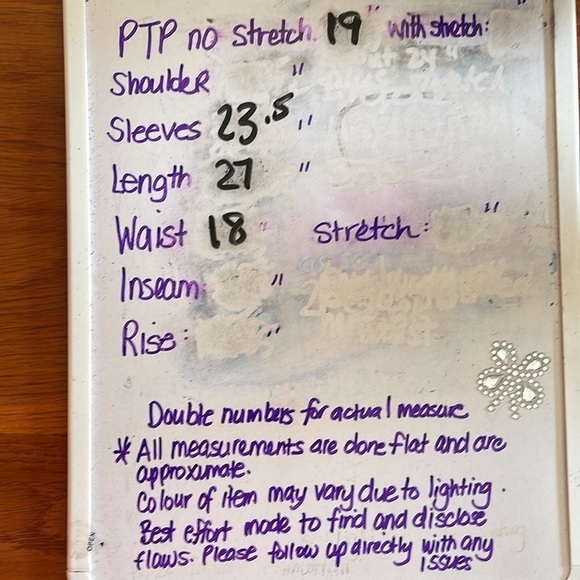 PTP no Stretch 19" with stretch: "
Shoulder "
Sleeves 23.5 "
Length 27 "
Waist 18 " Stretch: "
Inseam "
Rise: "
Double numbers for actual measure
* All measurements are done flat and are
approximate.
Colour of item may vary due to lighting.
Best effort made to find and disclose
flaws. Please follow up directly with any
issues
OPEN